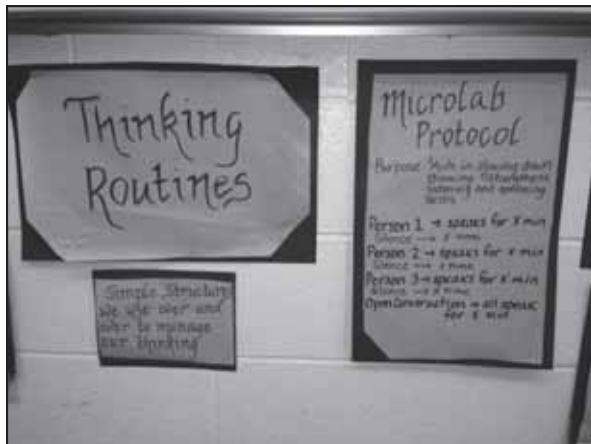 Thinking
Routines
Simple Structure
we use over and
over to manage
our thinking
Microlab
Protocol
Purpose
listening and
Person 1 → speaks for X min
Silence → X
Person 2 → speaks for X min
Silence → X
Person 3 → speaks for X min
Silence → X
Open Conversation → all speak
for X min